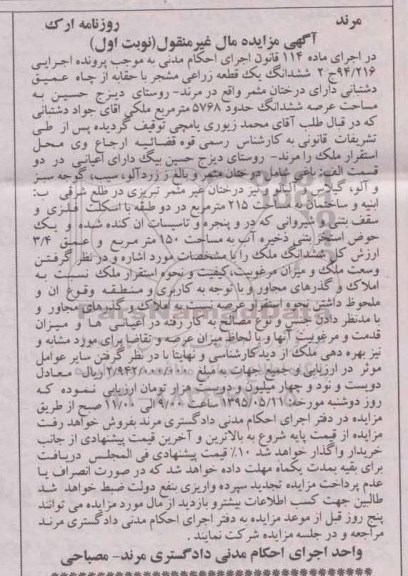 مرند روزنامه ارک
آگهی مزایده مال غیرمنقول(نوبت اول)
در اجرای ماده ۱۱۴ قانون اجرای احکام مدنی به موجب پرونده اجرایی
۹۴/۲۱۶ج ۲ ششدانگ یک قطعه زراعی مشجر با حقابه از چاه عمیق
دشتبانی دارای درختان مثمر واقع در مرند- روستای دیزج حسین به
مساحت عرصه ششدانگ حدود ۵۷۶۸ مترمربع ملکی آقای جواد دشتبانی
که در قبال طلب آقای محمد زیوری یامچی توقیف گردیده پس از طی
تشریفات قانونی به کارشناس رسمی قوه قضائیه ارجاع وی محل
استقرار ملک را مرند- روستای دیزج حسین بیگ دارای اعیانی در دو
قسمت الف: باغی شامل درختان مثمر و بالغ زردآلو، سیب، گوجه سبز
و آلو، گیلاس و آلبالو و نیز درختان غیر مثمر تبریزی در ظلع شرقی ب:
ابنیه و ساختمان به مساحت ۲۱۵ مترمربع در دو طبقه با اسکلت فلزی و
سقف بتنی و شیروانی که در و پنجره و تاسیسات آن کنده شده و یک
حوض استخر بتنی ذخیره آب به مساحت ۱۵۰ متر مربع و عمق ۳/۴
ارزش کل ششدانگ ملک را با مشخصات مورد اشاره و در نظر گرفتن
وسعت ملک و میزان مرغوبیت، کیفیت و نحوه استقرار ملک نسبت به
املاک و گذرهای مجاور و با توجه به کاربری و منطقه وقوع آن و
ملحوظ داشتن نحوه استقرار عرصه نسبت به املاک و گذرهای مجاور و
با مدنظر دادن جنس و نوع مصالح به کار رفته در اعیانی ها و میزان
قدمت و مرغوبیت آنها و با لحاظ میزان عرصه و تقاضا برای مورد مشابه و
نیز بهره دهی ملک از دید کارشناسی و نهایتا با در نظر گرفتن سایر عوامل
موثر در ارزیابی و جمیع جهات به مبلغ ریال معادل
دویست و نود و چهار میلیون و دویست هزار تومان ارزیابی نموده که
روز دوشنبه مورخه: ۱۳۹۵/۰۵/۱۱ ساعت ۰۹/۰۰ الی ۱۱/۰۰ صبح از طریق
مزایده در دفتر اجرای احکام مدنی دادگستری مرند بفروش خواهد رفت
مزایده از قیمت پایه شروع به بالاترین و آخرین قیمت پیشنهادی از جانب
خریدار واگذار خواهد شد ۱۰٪ قیمت پیشنهادی فی المجلس دریافت
برای بقیه بمدت یکماه مهلت داده خواهد شد که در صورت انصراف یا
عدم پرداخت مزایده تجدید سپرده واریزی بنفع دولت ضبط خواهد شد
طالبین جهت کسب اطلاعات بیشتر و بازدید از مال مورد مزایده می توانند
پنج روز قبل از موعد مزایده به دفتر اجرای احکام مدنی دادگستری مرند
مراجعه و در جلسه مزایده شرکت نمایند.
واحد اجرای احکام مدنی دادگستری مرند- مصباحی